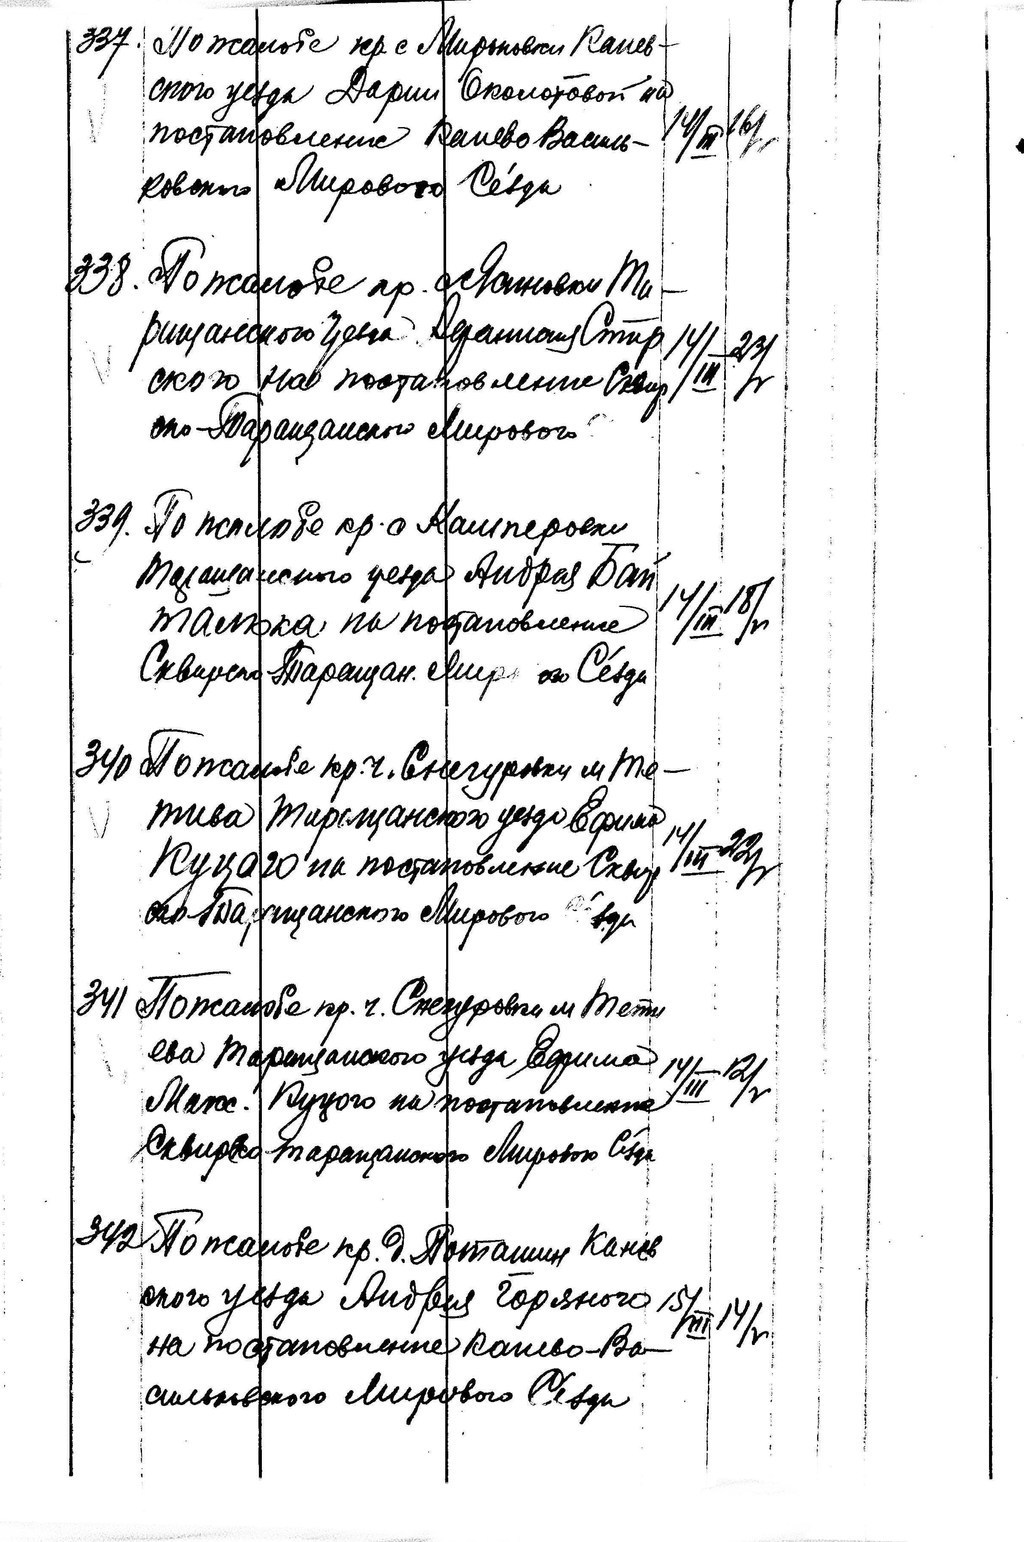 337. По жалобе кр. с Мироновки Канев-
ского уезда Дарии Околотовой на
постановление Канево Василь- 14/III 26/V
ковского Мирового Сьезда
338. По жалобе кр. с Яновки Та-
ращанского Уезда
ского на постановление Сквир 14/III 23/V
ско-Таращанского Мирового
339. По жалобе кр. с Кашперовки
Таращанского уезда Андрея Бай
талюка на постановление 14/III 18/V
Сквирско-Таращан. Мир го Сьезда
340 По жалобе кр. ч. Снегуровки м Те-
тиева Таращанского уезда Ефима
Куцаго на постановление Сквир 14/III 22/V
ско-Таращанского Мирового Сьезда
341 По жалобе кр. ч. Снегуровки м Тети
ева Таращанского уезда Ефима
Макс. Куцого на постановление 14/III 12/V
Сквирско-таращанского Мирового Сьезда
342 По жалобе кр. д. Поташни Канев
ского уезда Андрея Горяного 15/III 14/V
на постановление Канево-Ва-
сильковского Мирового Сьезда